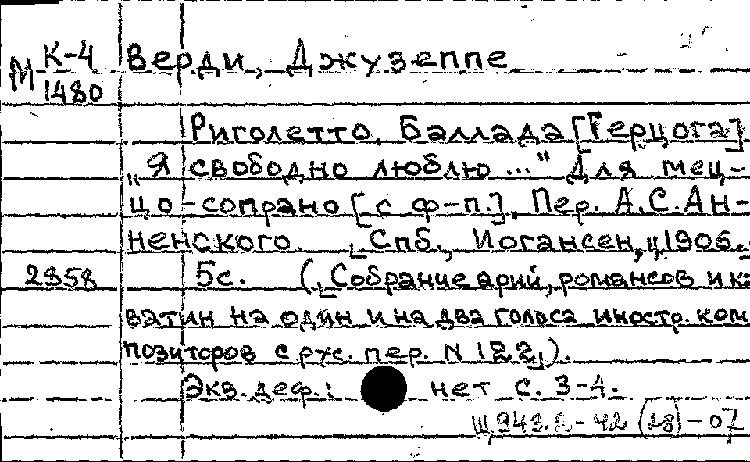 К-4 Верди, Джузеппе
М 1480
Риголетто. Баллада [Герцога]
„Я свободно люблю..." Для мец-
цо-сопрано [с ф-п.]. Пер. А.С.Ан-
ненского. Спб., Иогансен, ц.1906.
2858 5с. (Собрание арий, романсов и ка
ватин на один и на два голоса иностр. ком
позиторов с рус. пер. N 122).
Экз. деф.: нет с. 3-4.
(28)-07